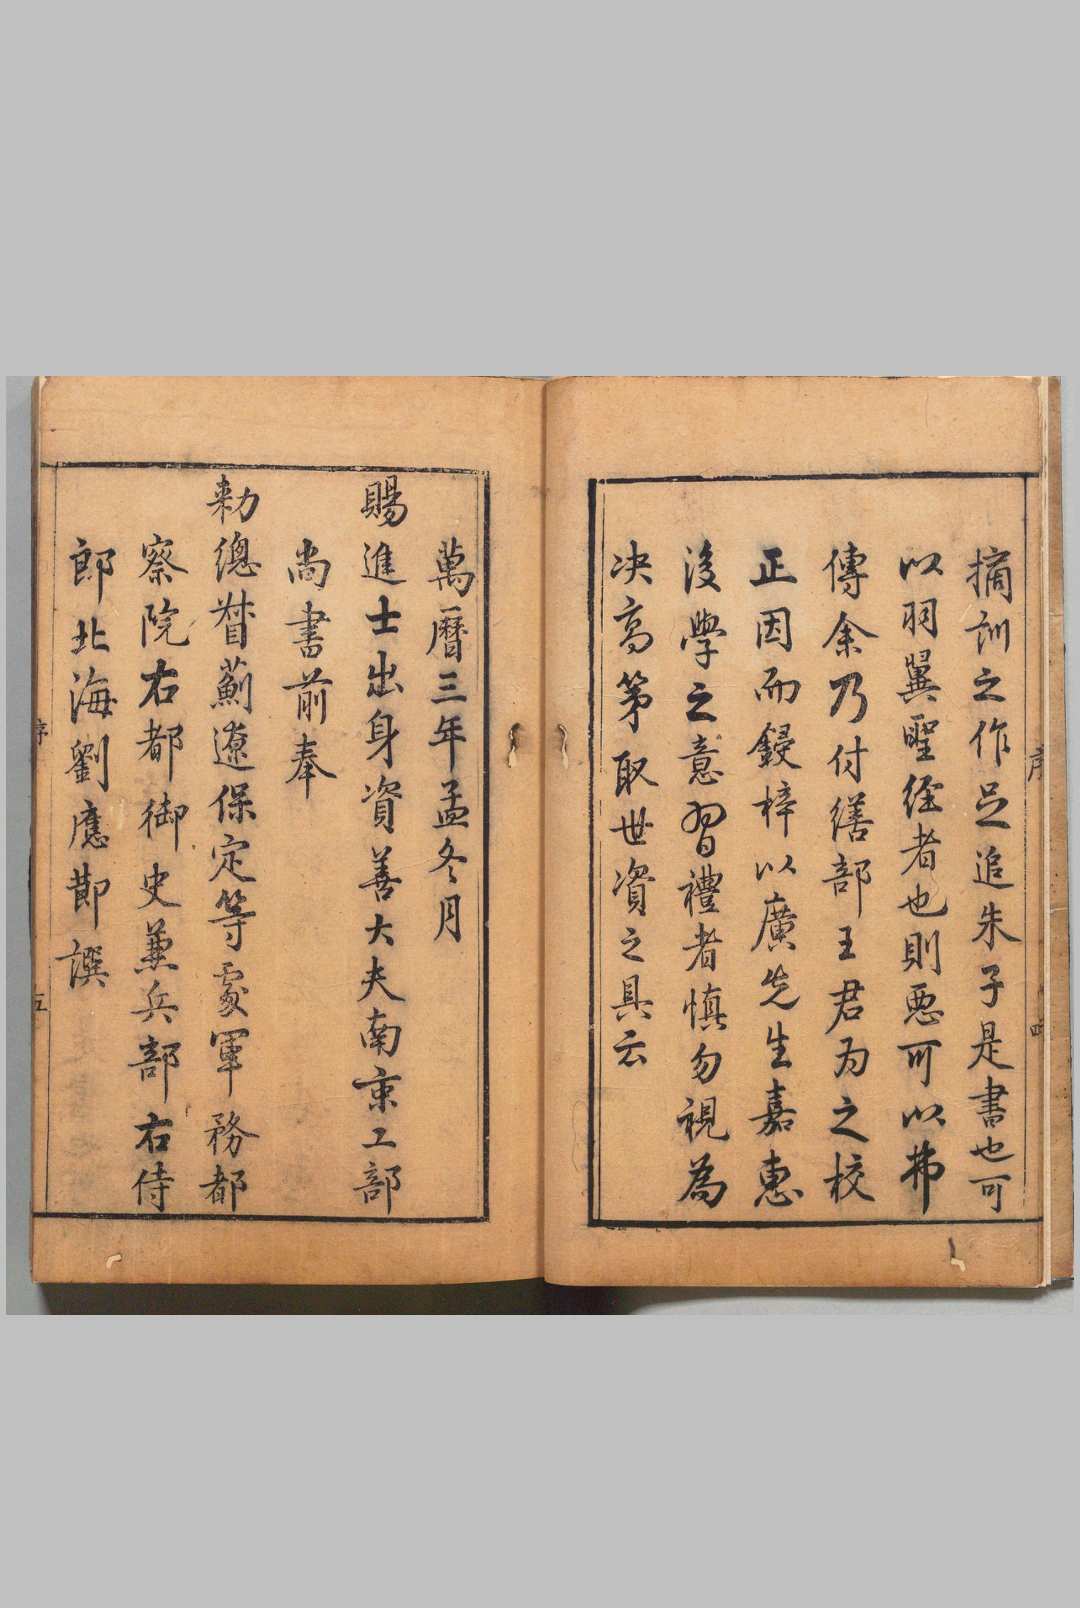 摘訓之作足追朱子是書也可
以羽翼聖經者也則惡可以弗
傳余乃付繕部王君为之校
正因而鋟梓以廣先生嘉惠
後學之意習禮者慎勿視為
决高第取世資之具云
萬曆三年孟冬月
賜進士出身資善大夫南京工部
尚書前奉
勑總督薊遼保定等處軍務都
察院右都御史兼兵部右侍
郎北海劉應節撰
序
五